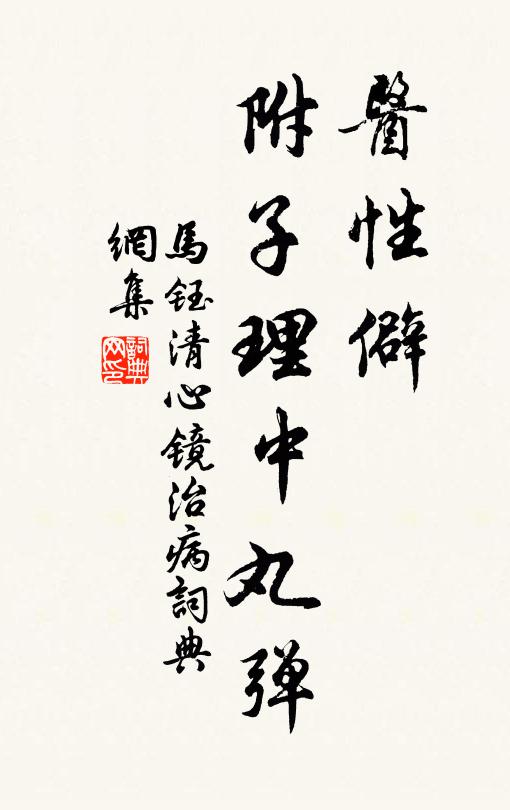 醫性僻
附子理中丸弹
馬鈺清心镜治病詞典
網集
詞典
网印